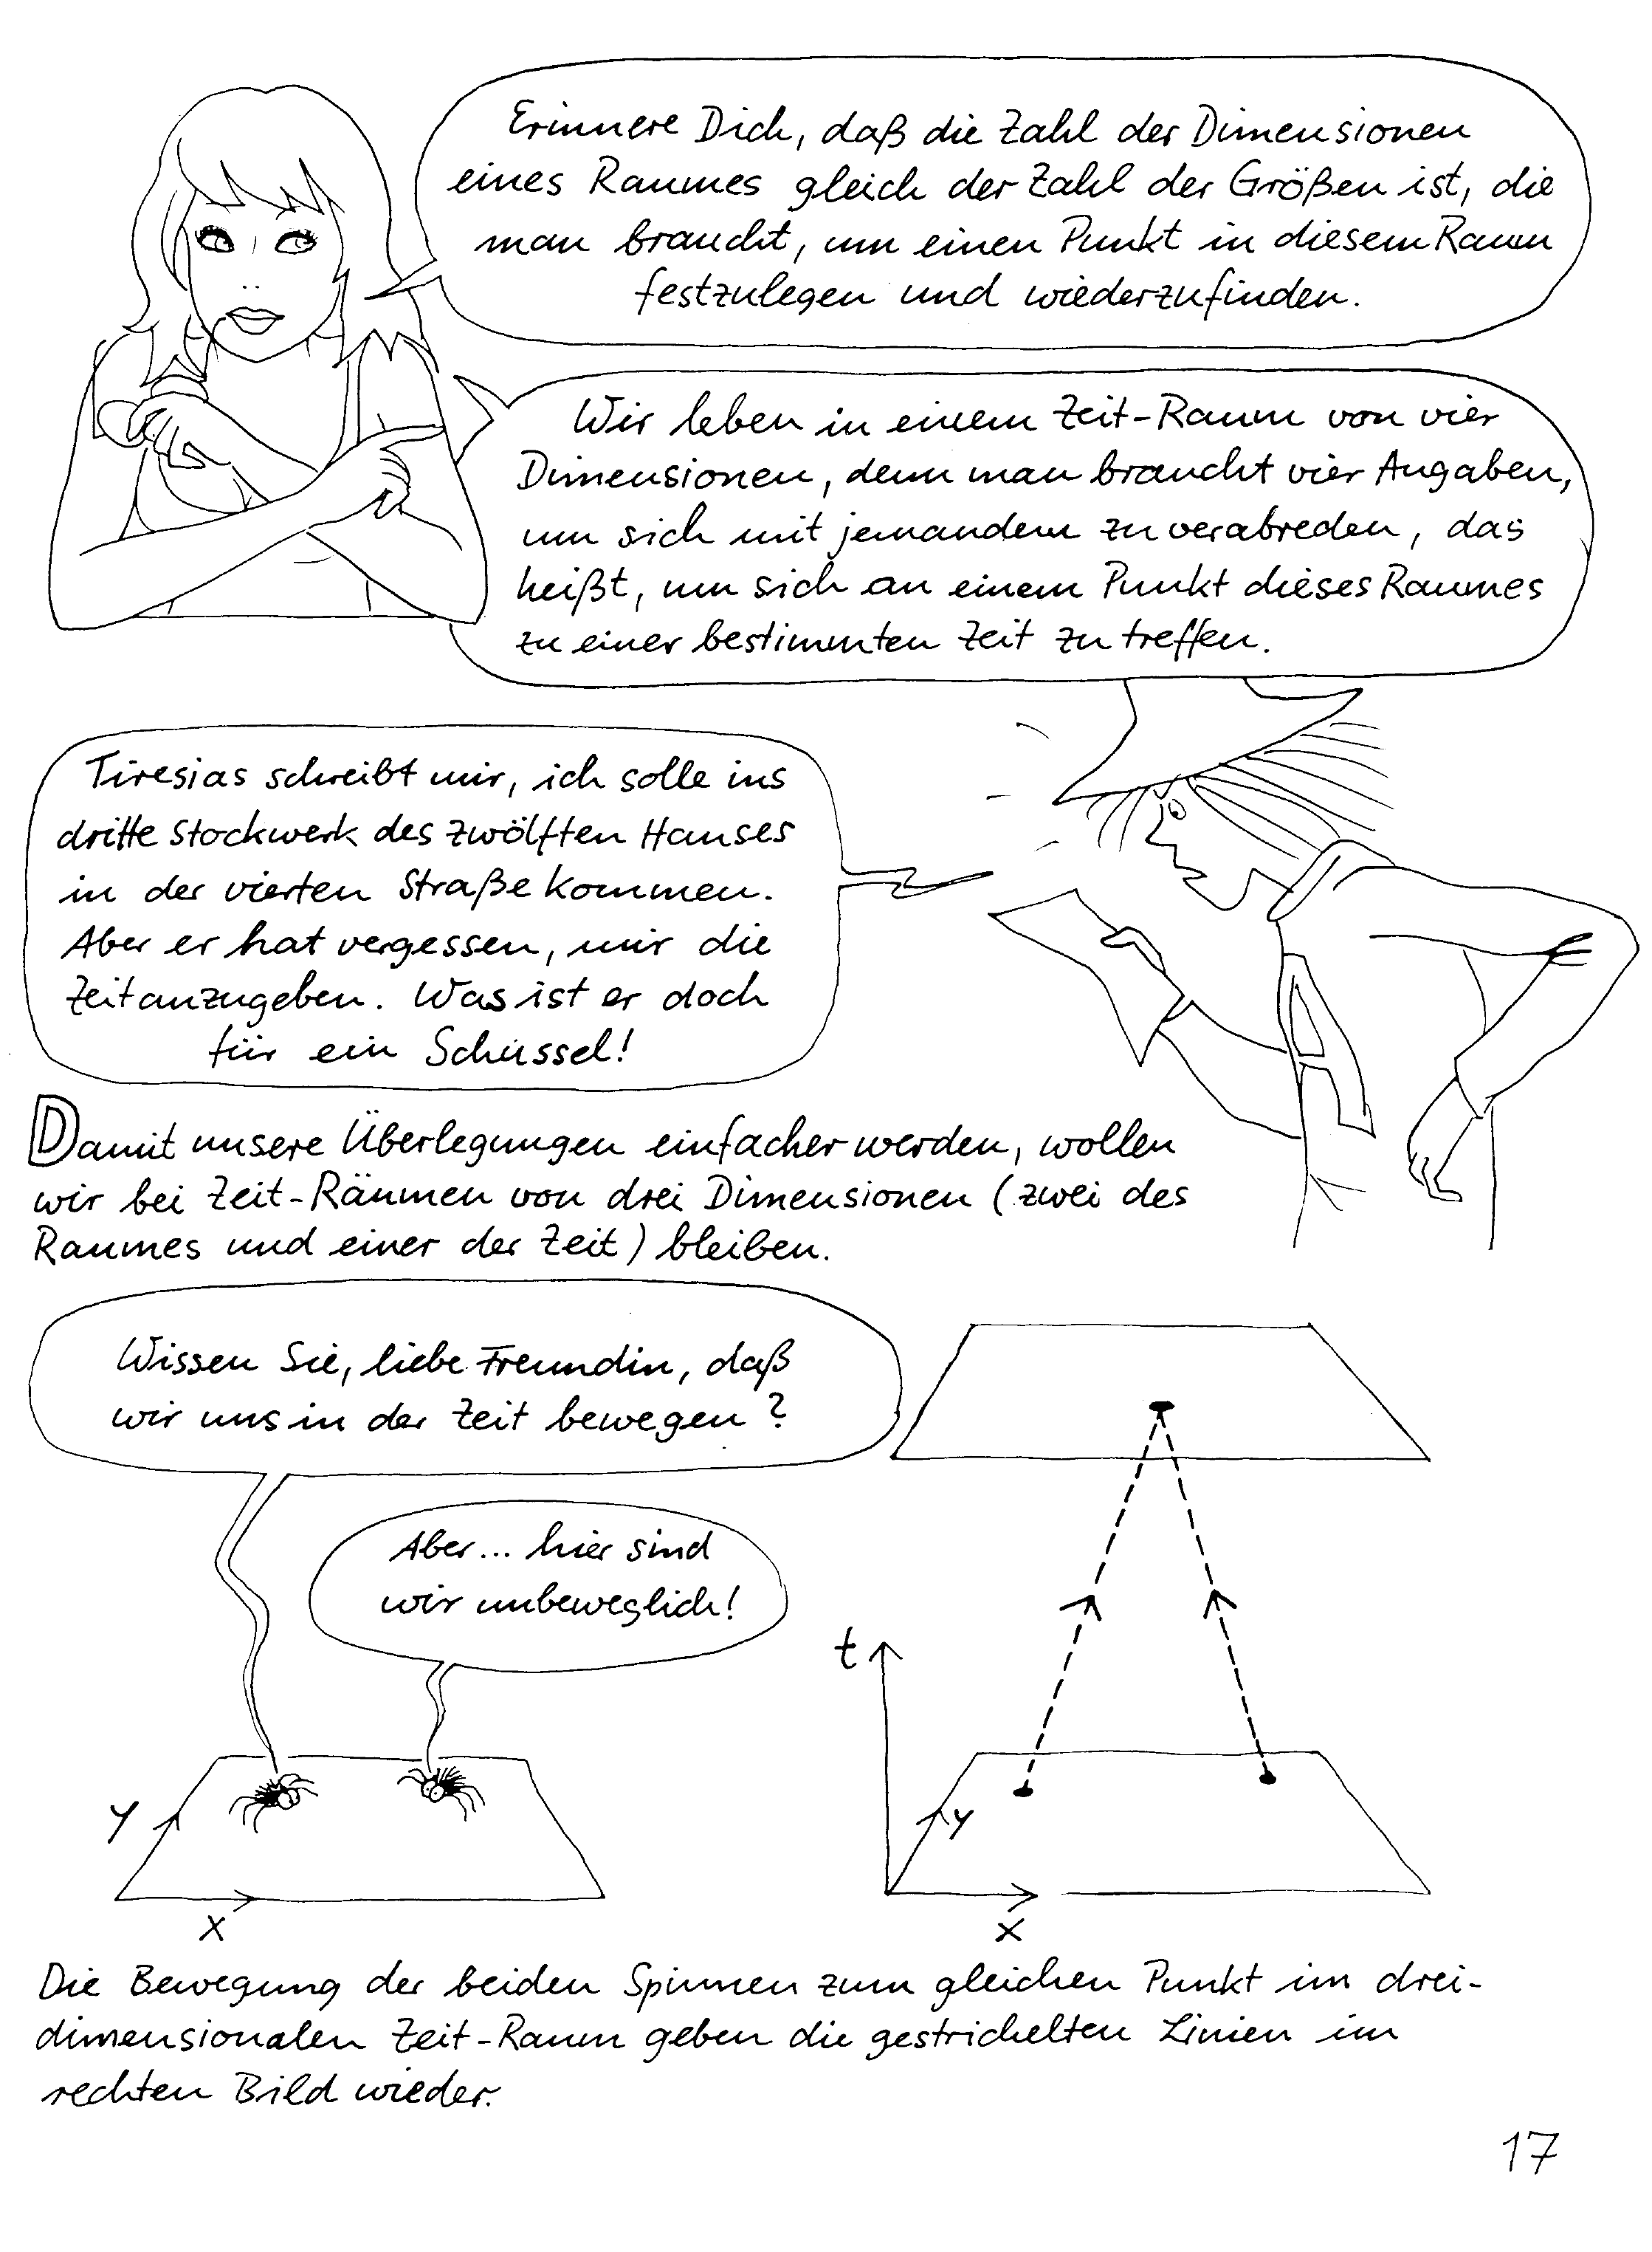 Erinnere Dich, daß die Zahl der Dimensionen
eines Raumes gleich der Zahl der Größen ist, die
man braucht, um einen Punkt in diesem Raum
festzulegen und wiederzufinden.
Wir leben in einem Zeit-Raum von vier
Dimensionen, denn man braucht vier Angaben,
um sich mit jemandem zu verabreden, das
heißt, um sich an einem Punkt dieses Raumes
zu einer bestimmten Zeit zu treffen.
Tiresias schreibt mir, ich solle ins
dritte Stockwerk des zwölften Hauses
in der vierten Straße kommen.
Aber er hat vergessen, mir die
Zeit anzugeben. Was ist er doch
für ein Schussel!
Damit unsere Überlegungen einfacher werden, wollen
wir bei Zeit-Räumen von drei Dimensionen (zwei des
Raumes und einer der Zeit) bleiben.
Wissen Sie, liebe Freundin, daß
wir uns in der Zeit bewegen?
Aber... hier sind
wir unbeweglich!
t
y
y
x
x
Die Bewegung der beiden Spinnen zum gleichen Punkt im drei-
dimensionalen Zeit-Raum geben die gestrichelten Linien im
rechten Bild wieder.
17